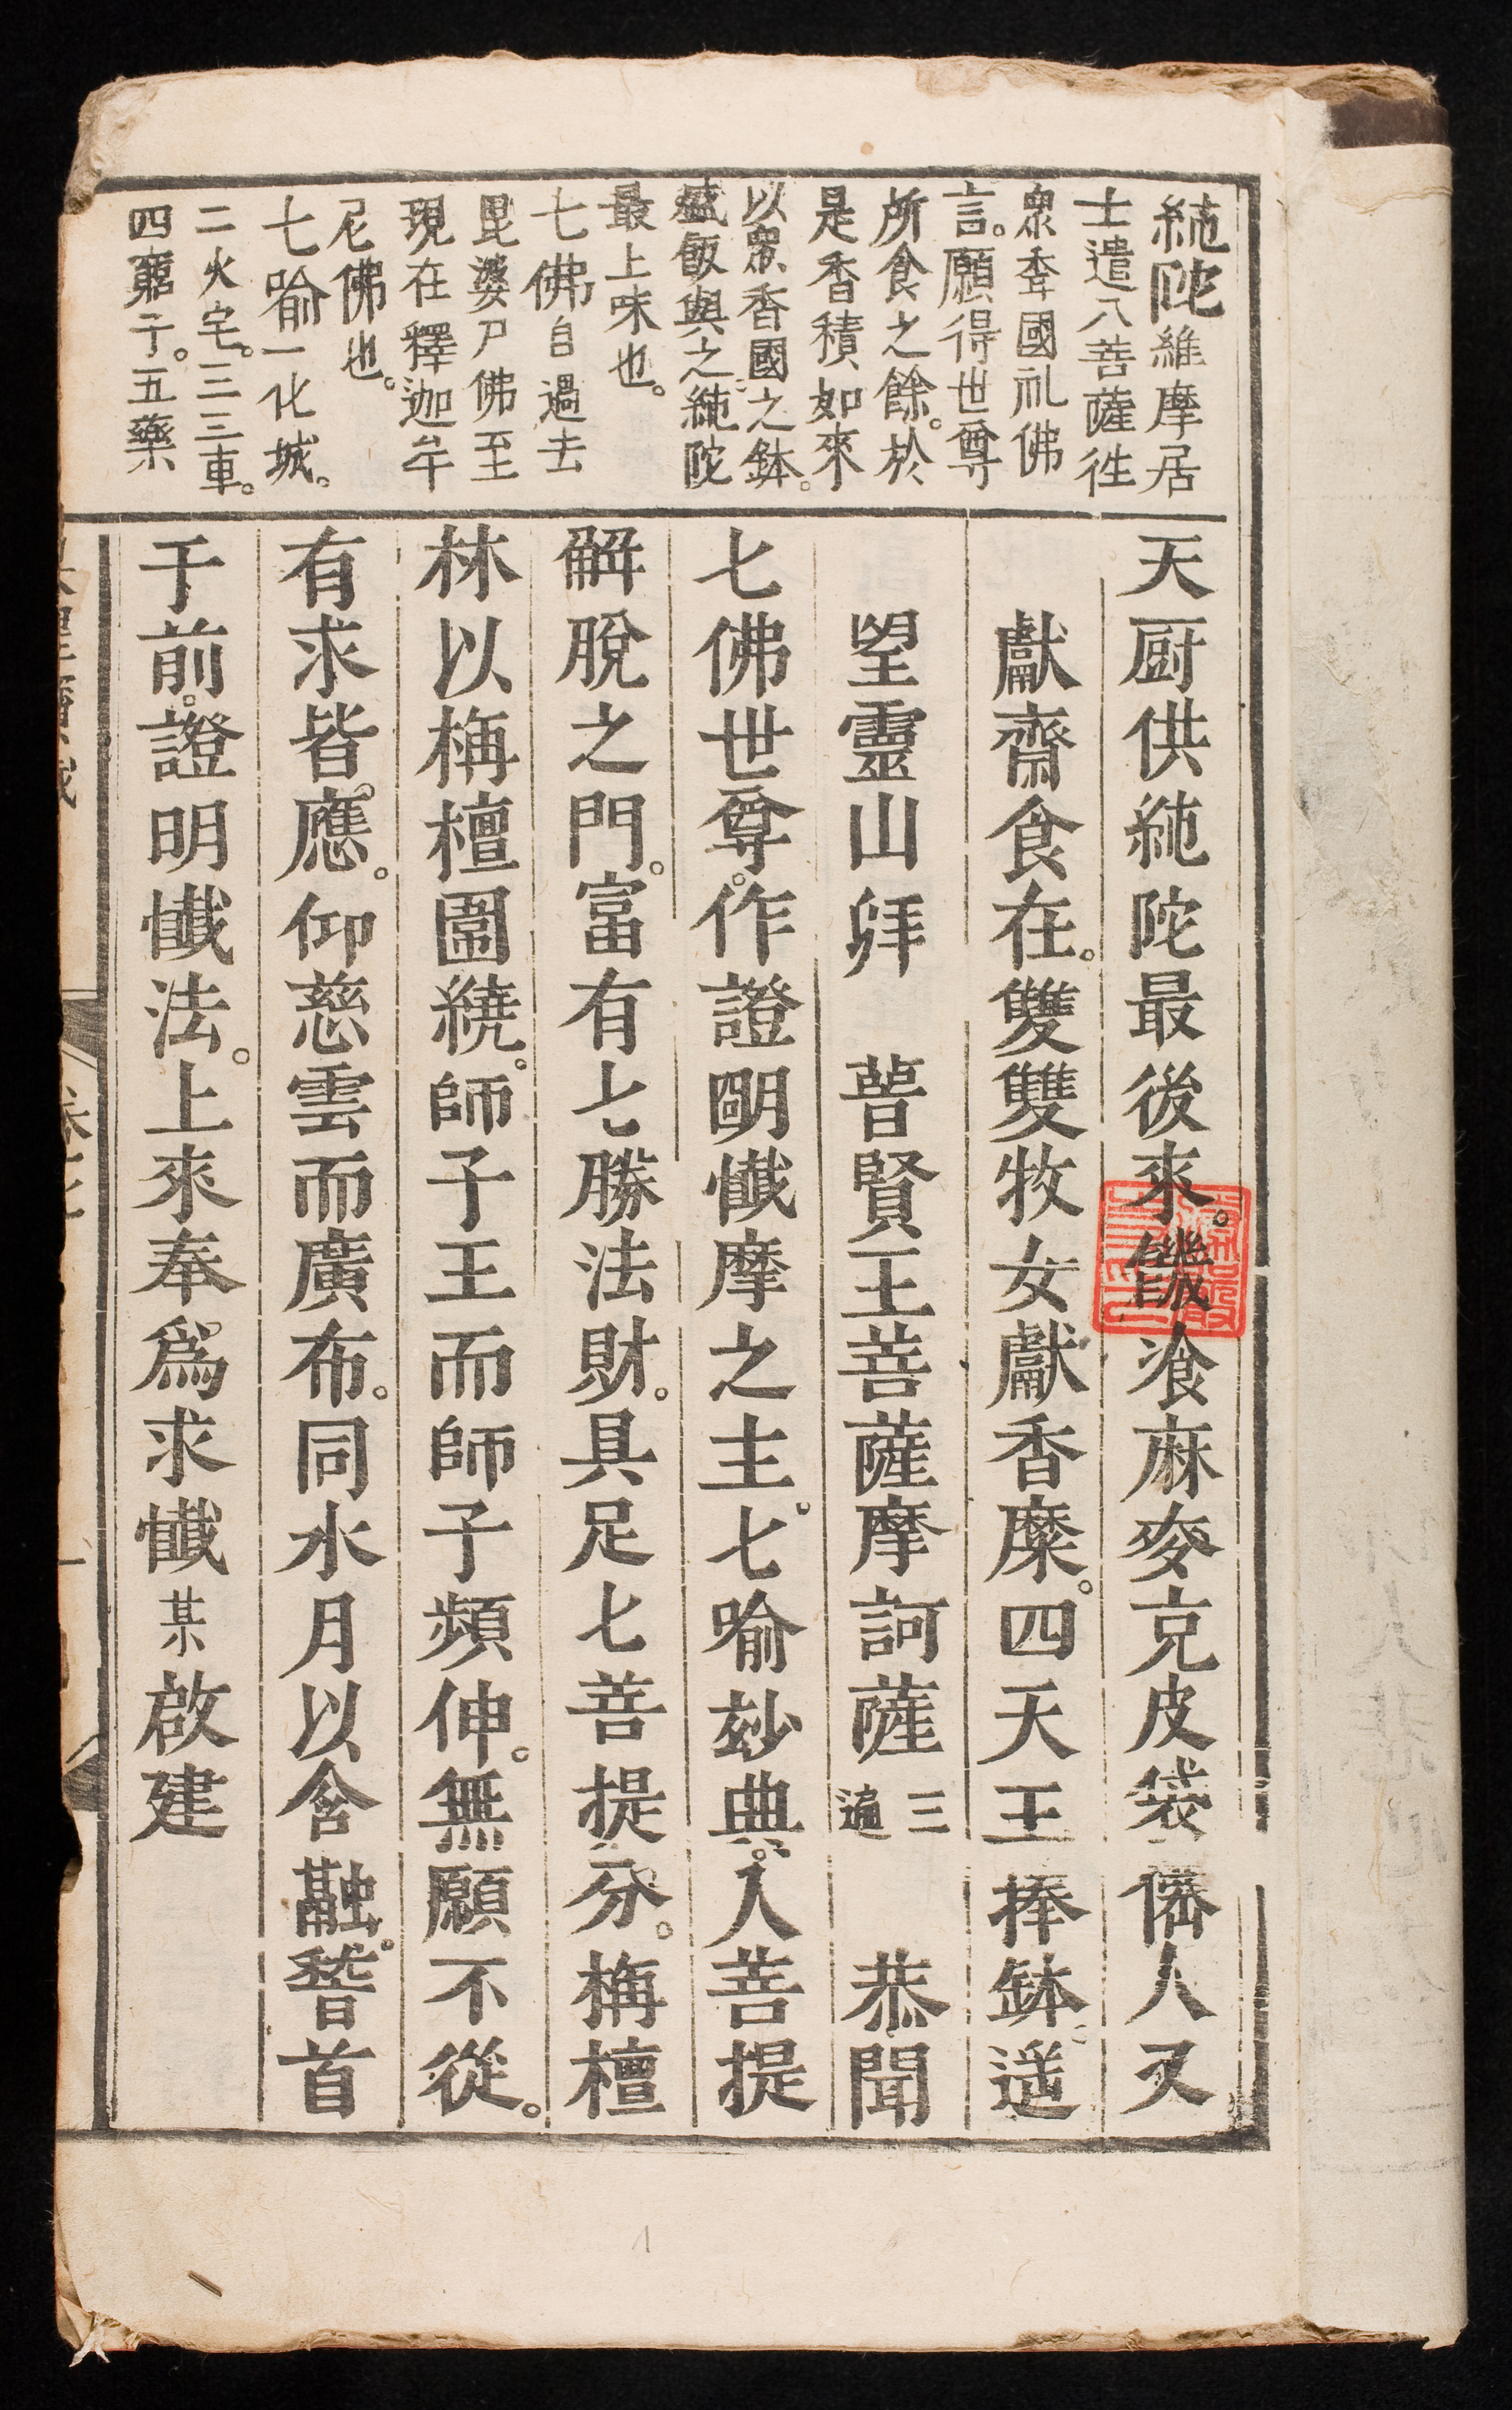 純陀維摩居
士遣八菩薩徃
衆香國礼佛
言。願得世尊
所食之餘。於
是香積如來
以衆香國之鉢。
盛飯與之純陀
最上味也。
七佛自過去
毘婆尸佛至
現在釋迦牟
尼佛也。
七喻一化城。
二火宅。三三車。
四窮子。五藥
天厨供純陀最後來。饑飡麻麥克皮袋儕人又
獻齋食在。雙雙牧女獻香糜。四天王捧鉢遥
望靈山拜 普賢王菩薩摩訶薩三遍 恭聞
七佛世尊。作證明懺摩之主。七喻玅典。人菩提
解脫之門。富有七勝法財。具足七菩提分。栴檀
林以栴檀圍繞。師子王而師子頻伸。無願不從。
有求皆應。仰慈雲而廣布。同水月以含融。稽首
于前。證明懺法。上來奉爲求懺某啟建